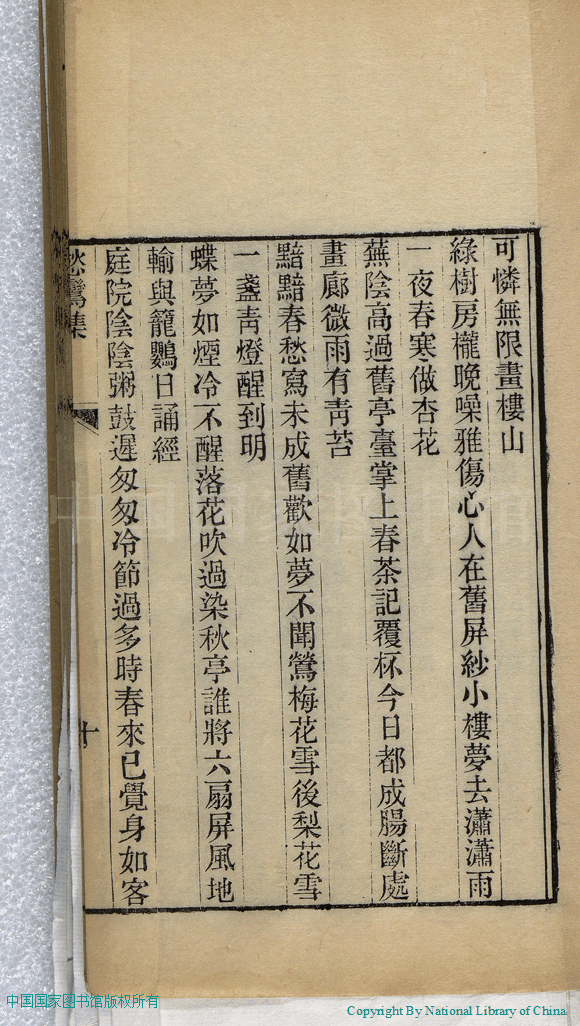 可憐無限畫樓山
綠樹房櫳晚噪雅傷心人在舊屏紗小樓夢去瀟瀟雨
一夜春寒做杏花
蕪陰高過舊亭臺掌上春茶記覆杯今日都成腸斷處
畫廊微雨有靑苔
黯黯春愁寫未成舊歡如夢不聞鶯梅花雪後梨花雪
一盞靑燈醒到明
蝶夢如煙冷不醒落花吹過染秋亭誰將六扇屏風地
輸與籠鸚日誦經
庭院陰陰粥鼓遲匆匆冷節過多時春來已覺身如客
愁鸞集
十
中国国家图书馆
中国国家图书馆版权所有
Copyright By National Library of China